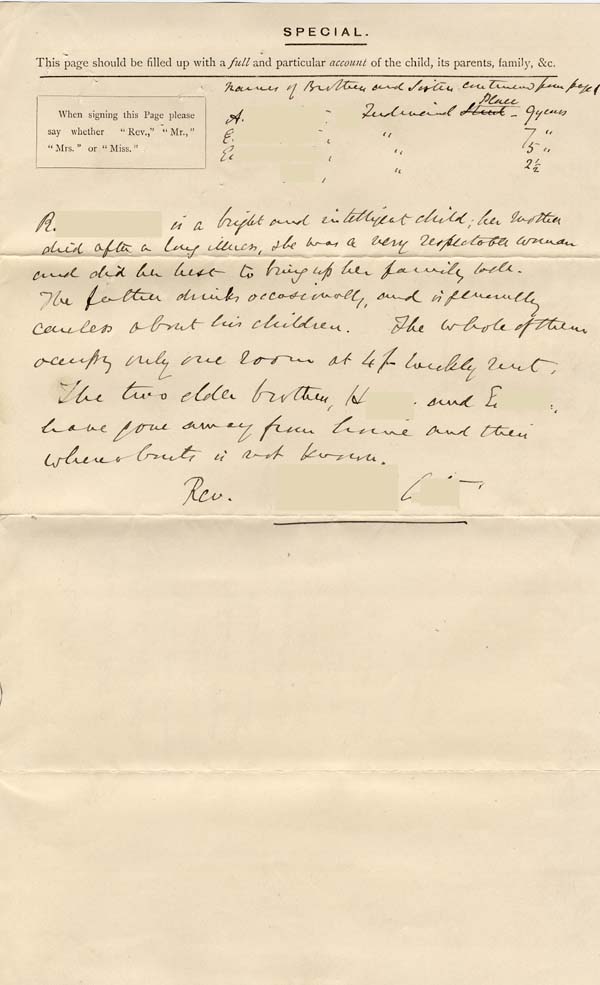 SPECIAL.
This page should be filled up with a full and particular account of the child, its parents, family, &c.
Names of Brothers and Sisters continued from page 1
When signing this Page please
say whether "Rev.," "Mr.,"
"Mrs." or "Miss."
Place
A. " Ferdinand Street - 9 years
E. " " 7 "
E. " " 5 "
" " 2½
R. is a bright and intelligent child; her mother
died after a long illness, she was a very respectable woman
and did her best to bring up her family well.
The father drinks occasionally, and is generally
careless about his children. The whole of them
occupy only one room at 4/- weekly rent.
The two elder brothers, H and E
have gone away from home and their
whereabouts is not known.
Rev.